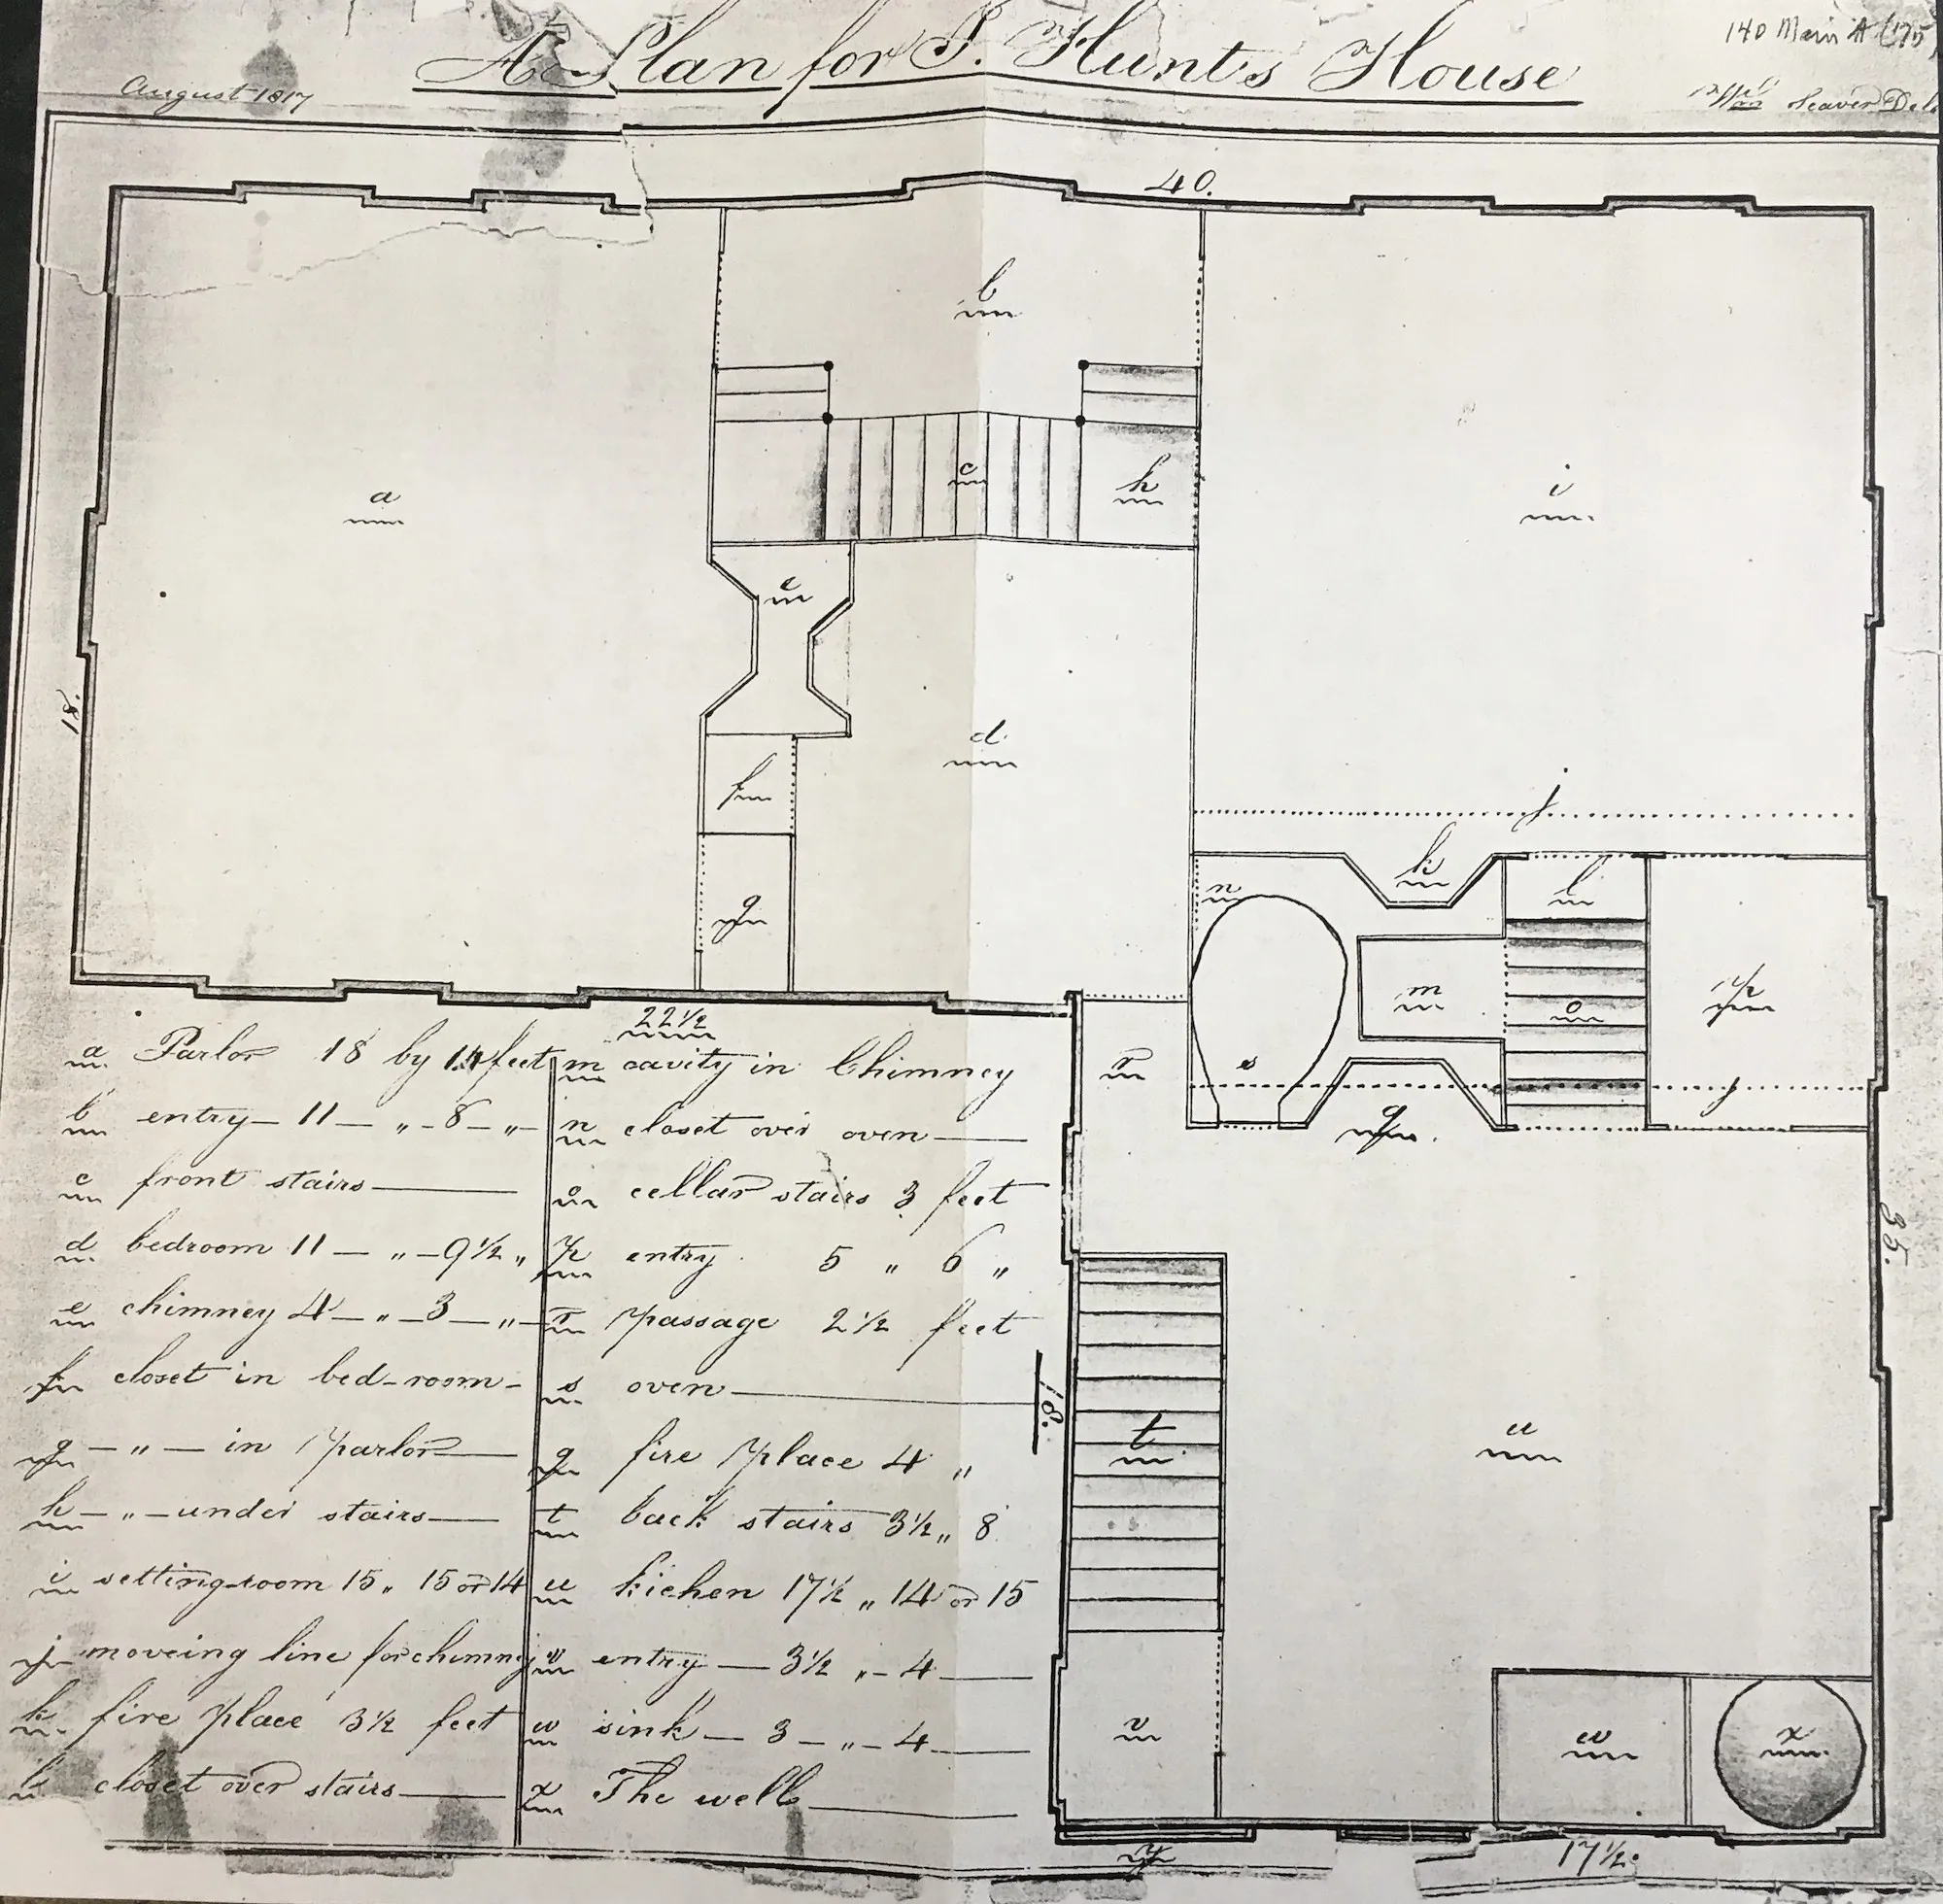 140 Main St (175
A Plan for S. Hunt's House
August 1817
Seaver Del
40.
b
a
c
h
i
e
d
18.
f
j
k
n
l
g
m
o
p
22 1/2
r
s
j
q
35.
18.
t
u
v
w
x
y
17 1/2
a Parlor 18 by 14 feet
b entry — 11 — " - 8 - "
c front stairs
d bedroom 11 — " — 9 1/2 "
e chimney 4 — " — 3 — "
f closet in bed-room -
g — " — in parlor
h — " — under stairs
i setting-room 15 " 15 or 14
j moveing line for chimny
k fire place 3 1/2 feet
l closet over stairs
m cavity in Chimney
n closet over oven
o cellar stairs 3 feet
p entry 5 " 6 "
r passage 2 1/2 feet
s oven
q fire place 4 "
t back stairs 3 1/2 " 8
u kichen 17 1/2 " 14 or 15
v entry — 3 1/2 " - 4
w sink — 3 — " — 4
x The well